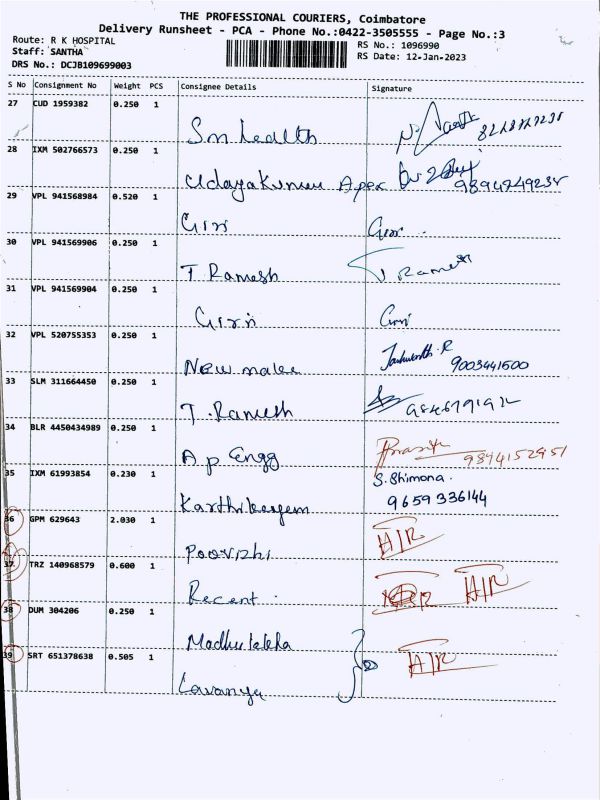 THE PROFESSIONAL COURIERS, Coimbatore
Delivery Runsheet - PCA - Phone No.:0422-3505555 - Page No.:3
Route: R K HOSPITAL
Staff: SANTHA
DRS No.: DCJB109699003
RS No.: 1096990
RS Date: 12-Jan-2023
S No Consignment No Weight PCS Consignee Details Signature
27 CUD 1959382 0.250 1
Sm health
28 IXM 502766573 0.250 1
Udayakumar Apex 9894249238
29 VPL 941568984 0.520 1
Giri Giri
30 VPL 941569906 0.250 1
T. Ramesh T Ramesh
31 VPL 941569904 0.250 1
Giri Giri
32 VPL 520755353 0.250 1
New 9003441500
33 SLM 311664450 0.250 1
T. Ramesh
34 BLR 4450434989 0.250 1
A p Engg 9894152951
35 IXM 61993854 0.230 1 S. Shimona.
Karthikeyen 9659336144
36 GPM 629643 2.030 1
Poovizhi A/R
37 TRZ 140968579 0.600 1
Recent. A/R
38 DUM 304206 0.250 1
Madhulekha
39 SRT 651378638 0.505 1 A/R
Lavanya